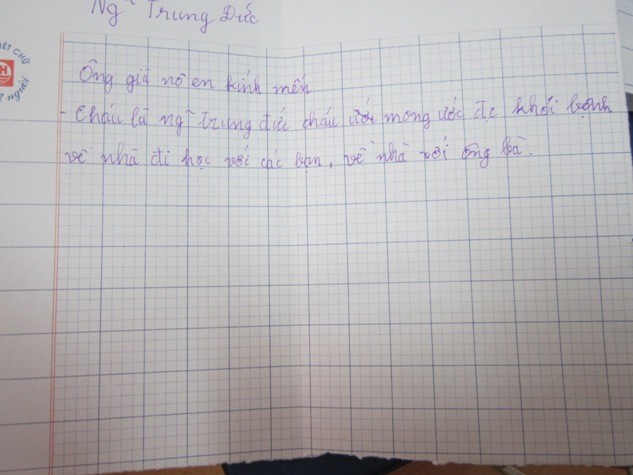 Ng~ Trung Đức
Ông già nô en kính mến
- Cháu là ng~ trung đức cháu ước mong ước đc khỏi bệnh
về nhà đi học với các bạn, về nhà với ông bà.